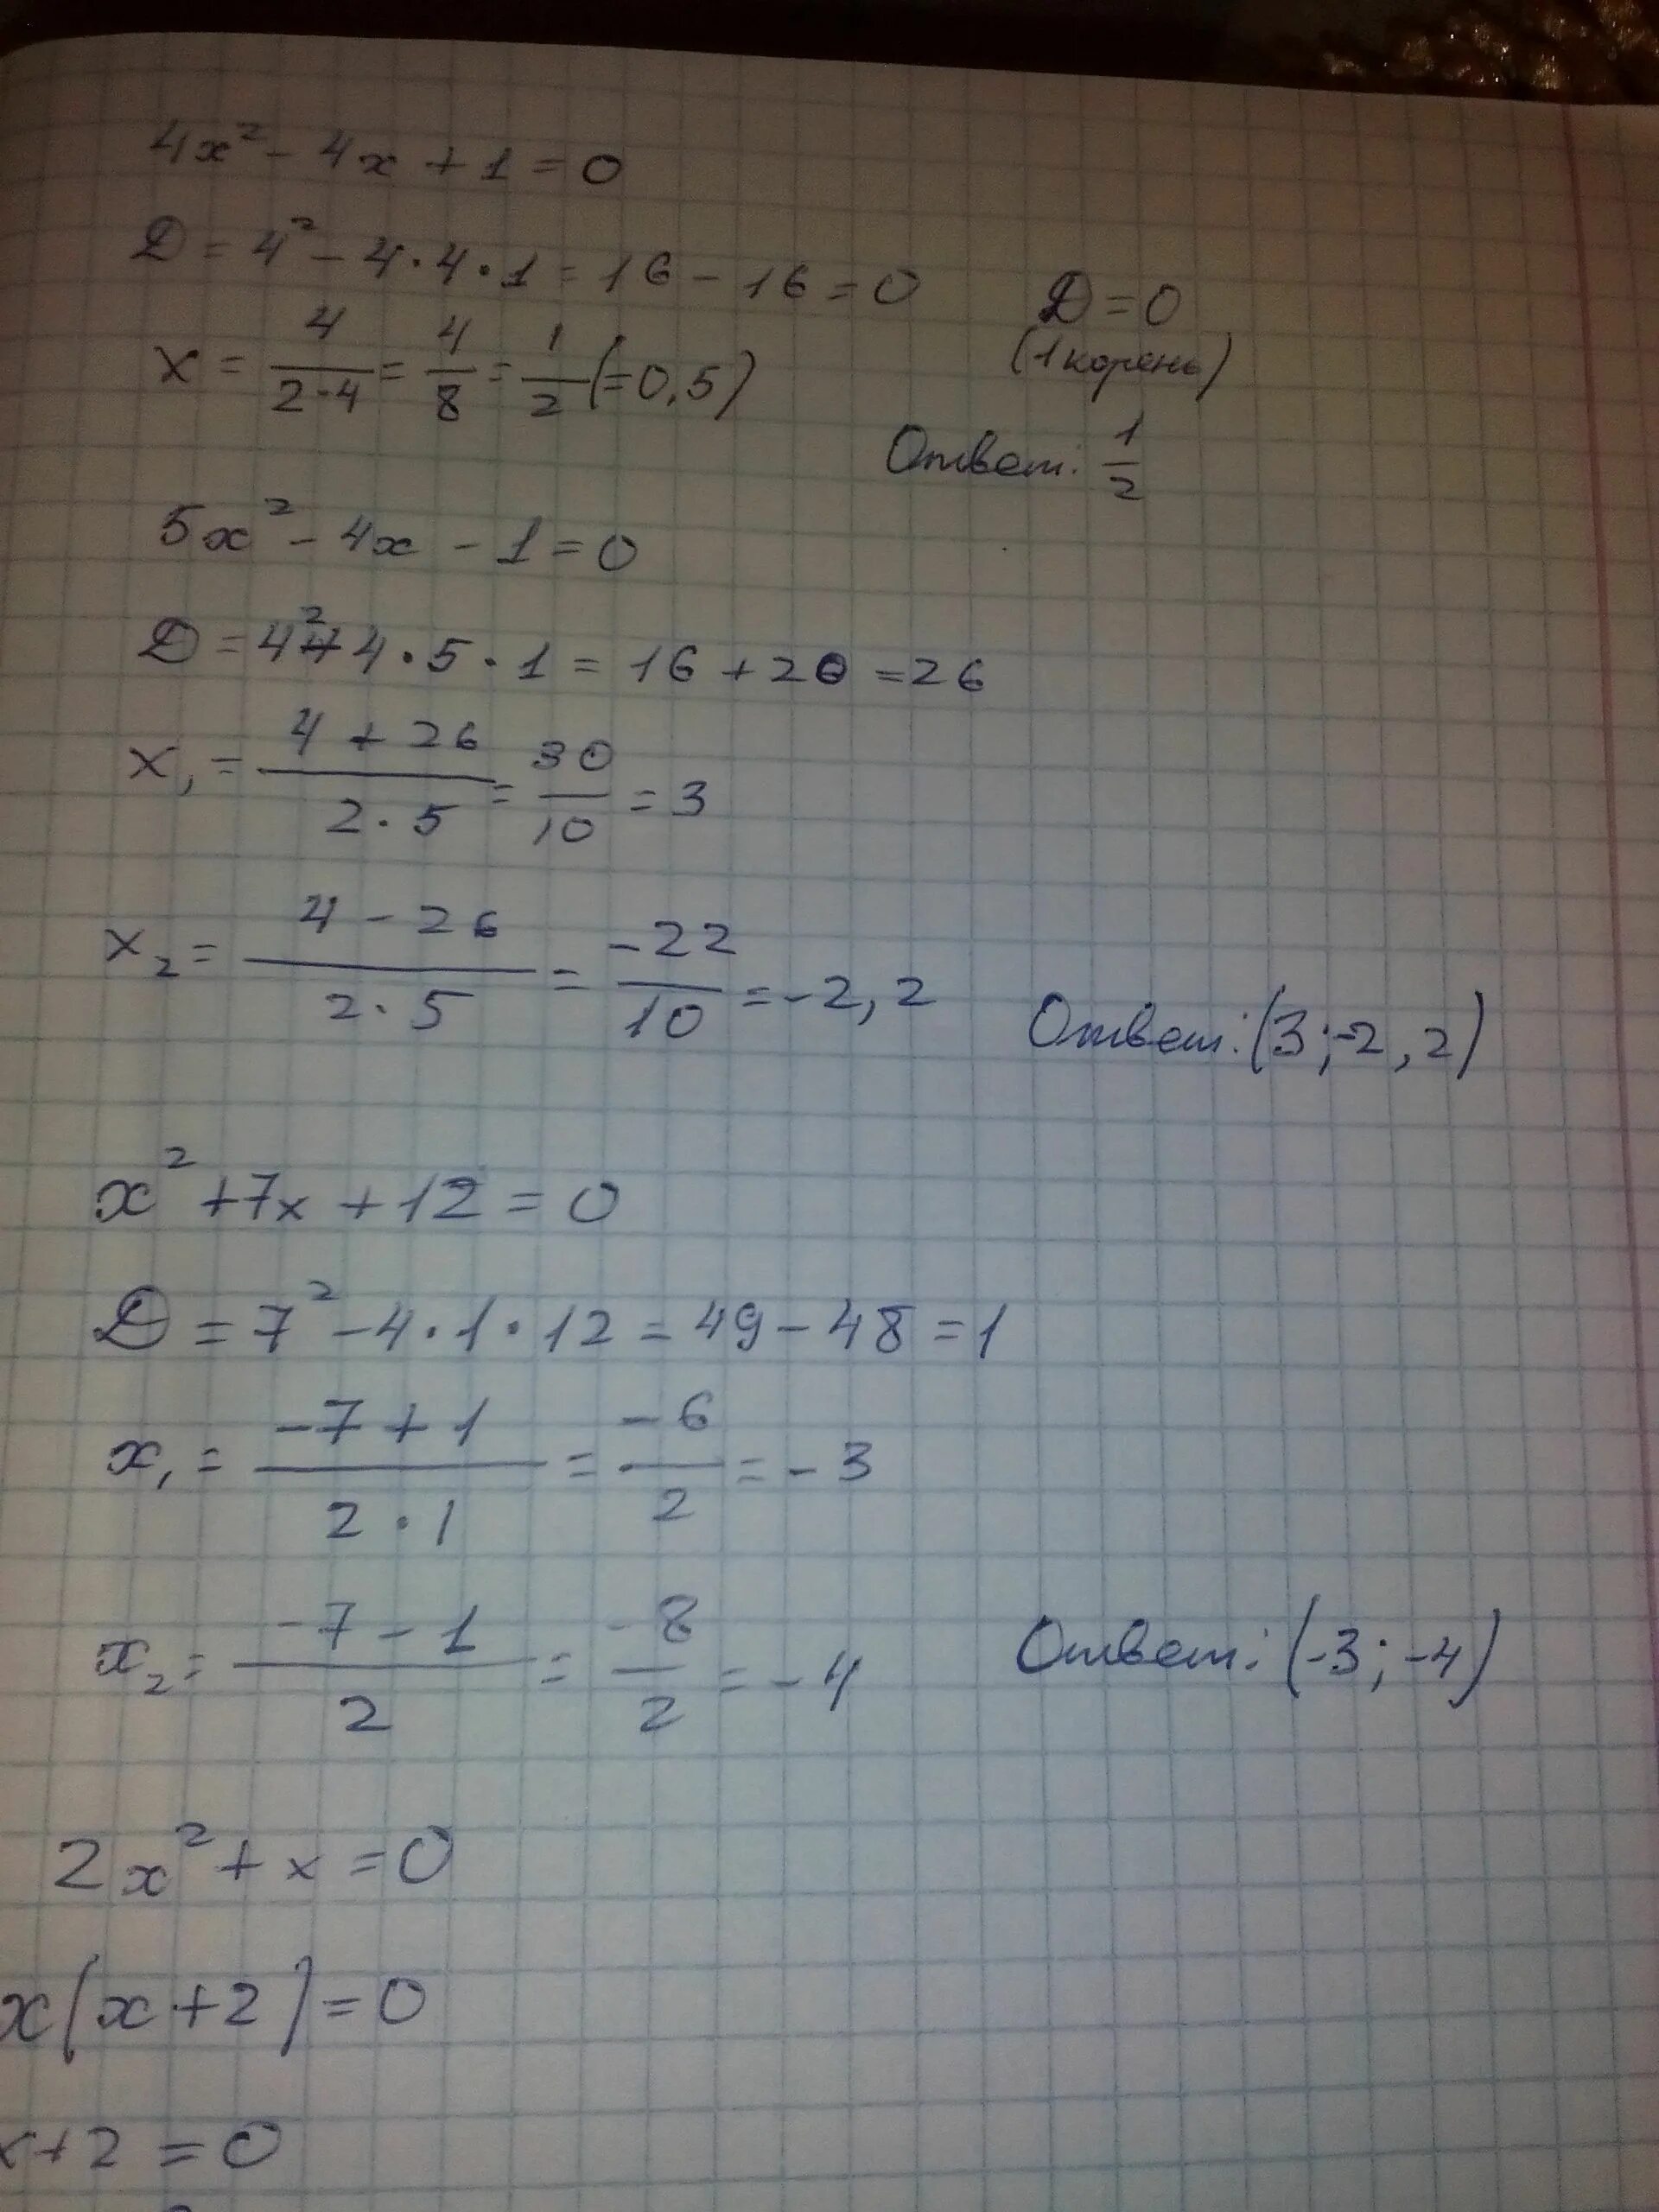 4x² - 4x + 1 = 0
D = 4² - 4·4·1 = 16 - 16 = 0
D = 0
(1 корень)
x = 4/(2·4) = 4/8 = 1/2 (=0,5)
Ответ: 1/2
5x² - 4x - 1 = 0
D = 4² + 4·5·1 = 16 + 20 = 26
x₁ = (4 + 26)/(2·5) = 30/10 = 3
x₂ = (4 - 26)/(2·5) = -22/10 = -2,2
Ответ: (3; -2,2)
x² + 7x + 12 = 0
D = 7² - 4·1·12 = 49 - 48 = 1
x₁ = (-7 + 1)/(2·1) = -6/2 = -3
x₂ = (-7 - 1)/2 = -8/2 = -4
Ответ: (-3; -4)
2x² + x = 0
x(x + 2) = 0
x + 2 = 0